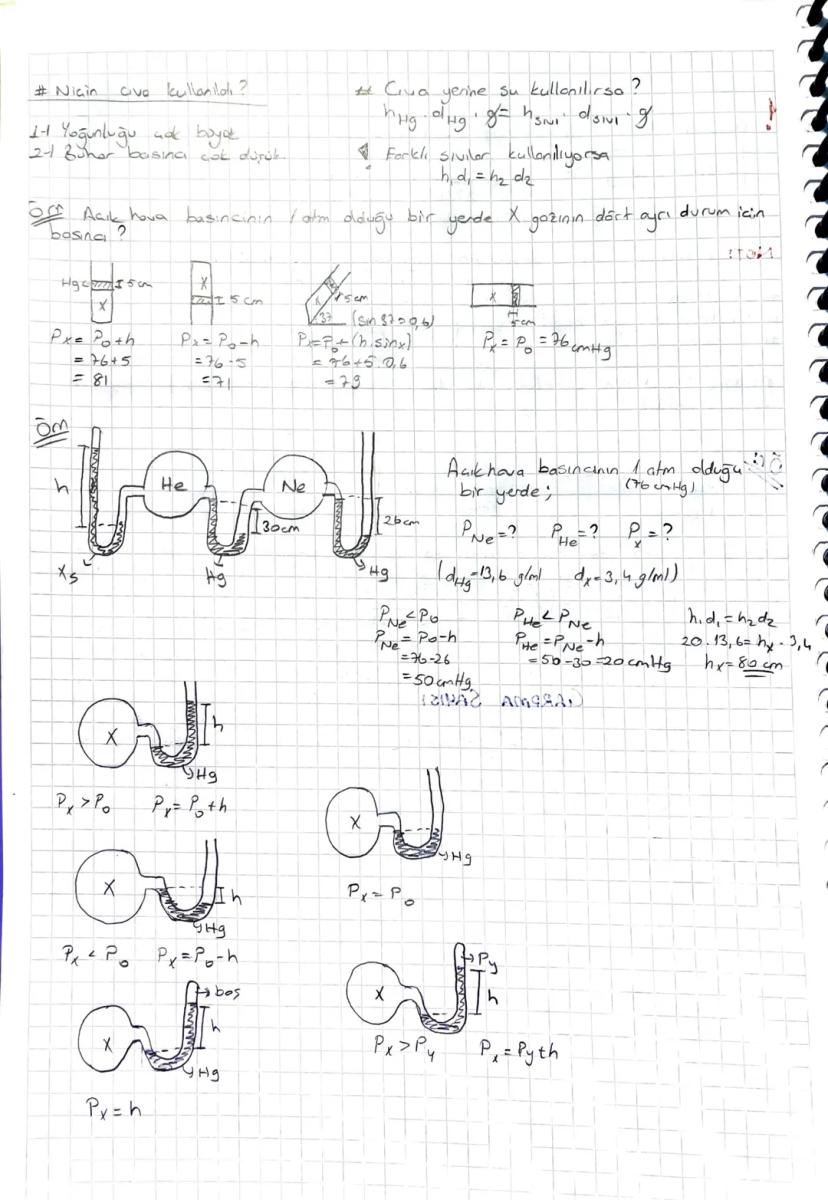 # Niçin civa kullanıldı?
1-) Yoğunluğu çok büyük
2-) Buhar basıncı çok düşük.
# Civa yerine su kullanılırsa?
hHg . dHg . g = hsıvı . dsıvı . g
! Farklı sıvılar kullanılıyorsa
h₁d₁ = h₂d₂
Örn Açık hava basıncının 1 atm olduğu bir yerde X gazının dört ayrı durum için
basıncı?
Hg
5cm
X
Px = P₀+h
= 76+5
= 81
X
5 cm
Px = P₀-h
= 76-5
= 71
X
5cm
37
(sin 37=0,6)
Px = P₀+(h.sinx)
= 76+5.0,6
= 79
X
5cm
Px = P₀ = 76 cmHg
Örn
h
He
Ne
30cm
26cm
Xs
Hg
Hg
Açık hava basıncının 1 atm olduğu
(76 cmHg)
bir yerde;
PNe=? PHe=? Px=?
(dHg=13,6 g/ml dx=3,4 g/ml)
PNe<P₀
PNe = P₀-h
= 76-26
= 50 cmHg
PHe<PNe
PHe = PNe-h
= 50-30=20 cmHg
h₁d₁ = h₂d₂
20.13,6 = hx.3,4
hx = 80 cm
X
h
Hg
Px > P₀ Px = P₀+h
X
Hg
Px = P₀
X
h
Hg
Px < P₀ Px = P₀-h
X
boş
h
Hg
Px = h
X
Py
h
Px > Py Px = Py+h